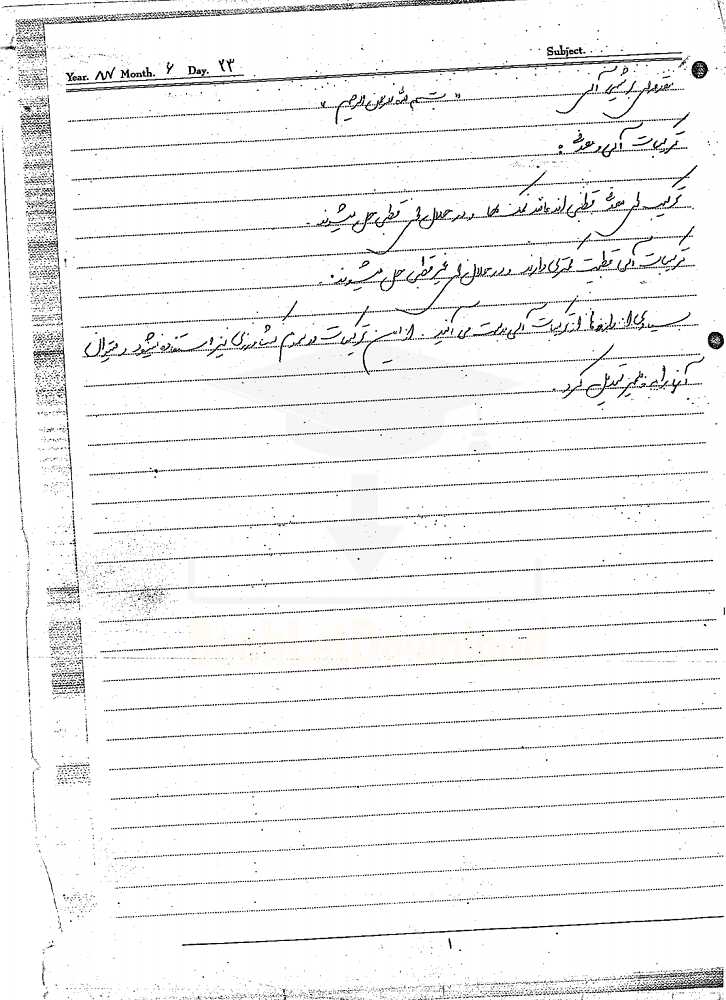 Subject.
Year. ۸۸ Month. ۶ Day. ۲۳
مقدمه‌ای بر شیمی آلی
"بسم الله الرحمن الرحیم"
ترکیبات آلی و معدنی:
ترکیب های معدنی قطبی اند مانند نمک ها و در حلال های قطبی حل میشوند.
ترکیبات آلی قطبیت کمتری دارند و در حلال های غیر قطبی حل میشوند.
بسیاری از داروها از ترکیبات آلی بدست می آیند. از این ترکیبات در علوم کشاورزی نیز استفاده میشود و میتوان
آنها را به تبدیل کرد.
۱